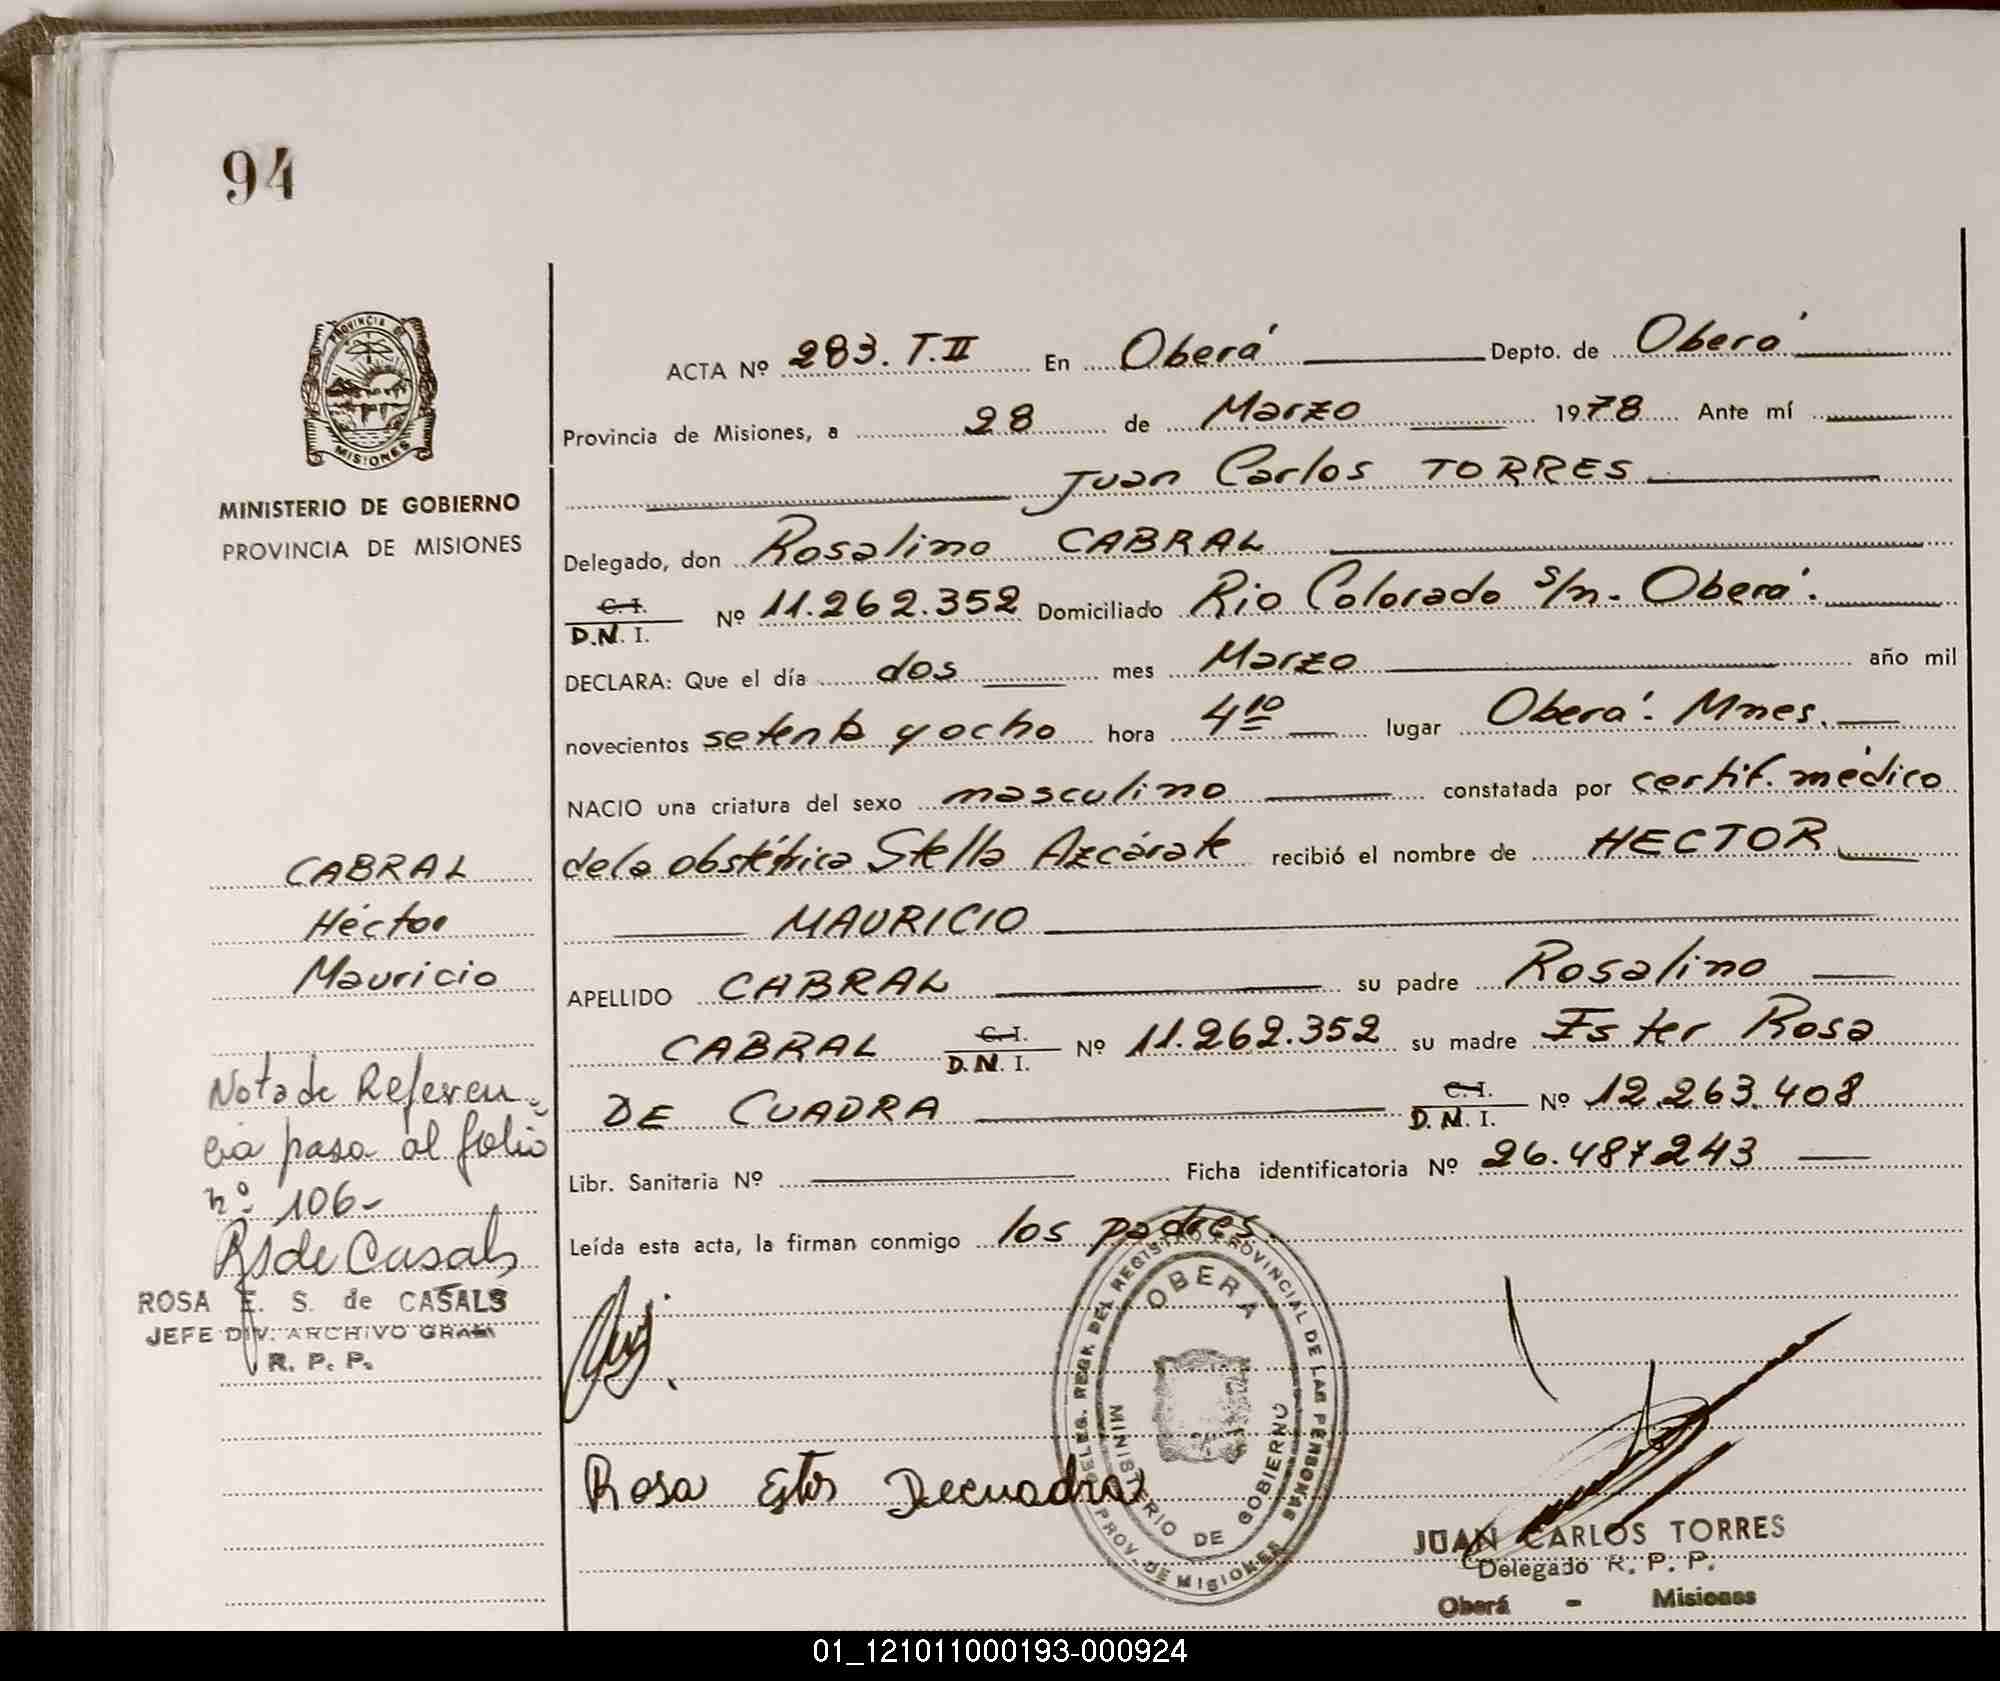 94
PROVINCIA DE
MISIONES
MINISTERIO DE GOBIERNO
PROVINCIA DE MISIONES
ACTA Nº 283. T.II En Oberá Depto. de Oberá
Provincia de Misiones, a 28 de Marzo 1978 Ante mí
Juan Carlos TORRES
Delegado, don Rosalino CABRAL
C. I.
D.N. I. Nº 11.262.352 Domiciliado Rio Colorado s/n. Oberá.
DECLARA: Que el día dos mes Marzo año mil
novecientos setenta y ocho hora 4 10 lugar Oberá. Mnes.
NACIO una criatura del sexo masculino constatada por certif. médico
de la obstétrica Stella Azcárate recibió el nombre de HECTOR
MAURICIO
APELLIDO CABRAL su padre Rosalino
CABRAL C. I. D. N. I. Nº 11.262.352 su madre Ester Rosa
DE CUADRA C. I. D. N. I. Nº 12.263.408
Libr. Sanitaria Nº Ficha identificatoria Nº 26.487243
Leída esta acta, la firman conmigo los padres.
CABRAL
Héctor
Mauricio
Nota de Referen-
cia pasa al folio
nº 106-
RSde Casals
ROSA E. S. de CASALS
JEFE DIV. ARCHIVO GRAL
R. P. P.
Rosa Ester Decuadra
DELEG. REGR. DEL REGISTRO PROVINCIAL DE LAS PERSONAS
OBERA
MINISTERIO DE GOBIERNO
PROV. DE MISIONES
JUAN CARLOS TORRES
Delegado R. P. P.
Oberá - Misiones
01_121011000193-000924